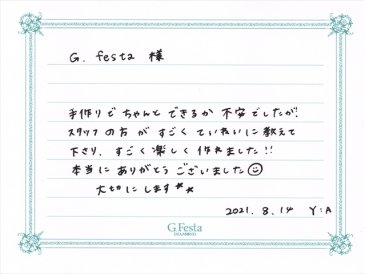 G. festa 様
手作りで ちゃんと できるか 不安でしたが!
スタッフ の 方 が すごく ていねいに 教えて
下さり、すごく 楽しく 作れました!!
本当に ありがとう ございました☺
大切にします**
2021. 8. 14 Y:A
G.Festa